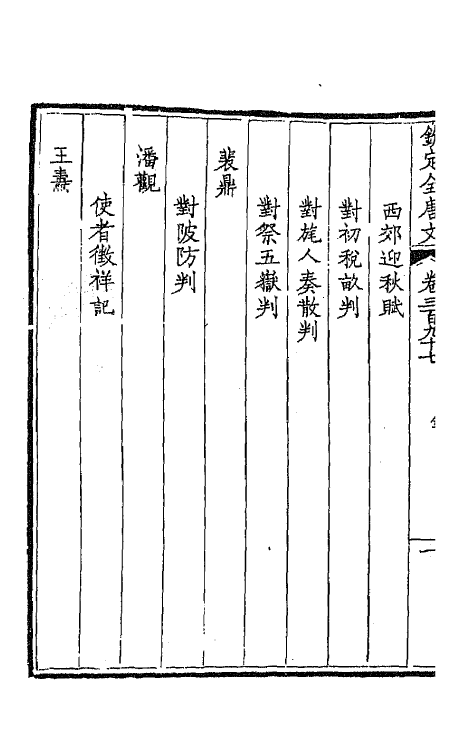 欽定全唐文 卷三百九十七 一
西郊迎秋賦
對初稅畝判
對旄人奏散判
對祭五嶽判
裴鼎
對陂防判
潘觀
使者徵祥記
王燾